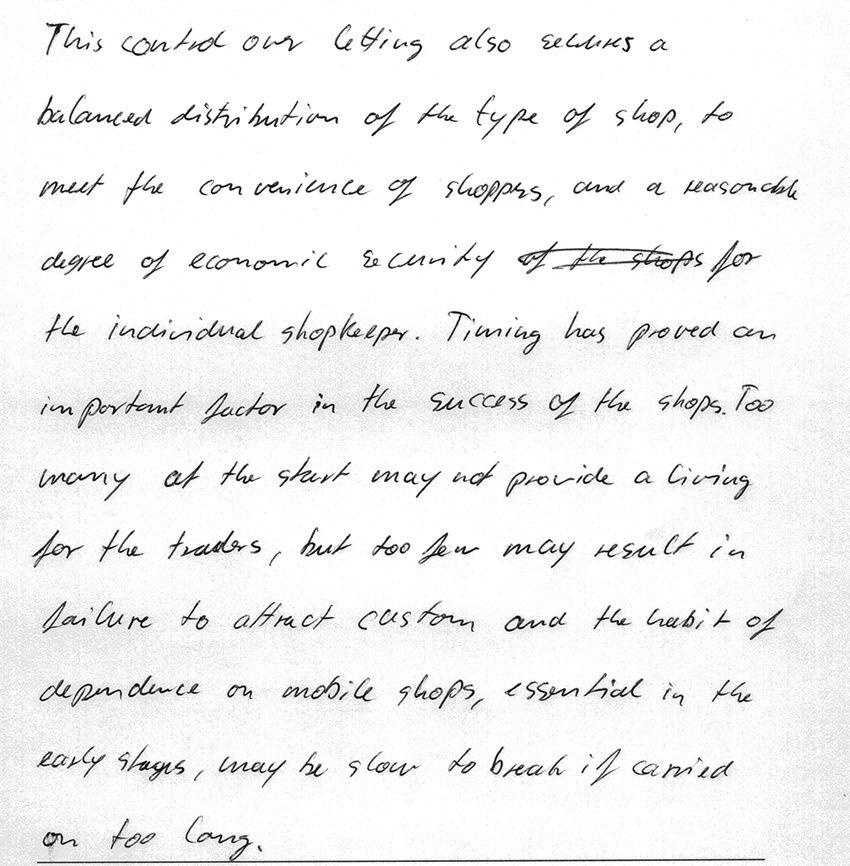 This control over letting also secures a
balanced distribution of the type of shop, to
meet the convenience of shoppers, and a reasonable
degree of economic security of the shops for
the individual shopkeeper. Timing has proved an
important factor in the success of the shops. Too
many at the start may not provide a living
for the traders, but too few may result in
failure to attract custom and the habit of
dependence on mobile shops, essential in the
early stages, may be slow to break if carried
on too long.